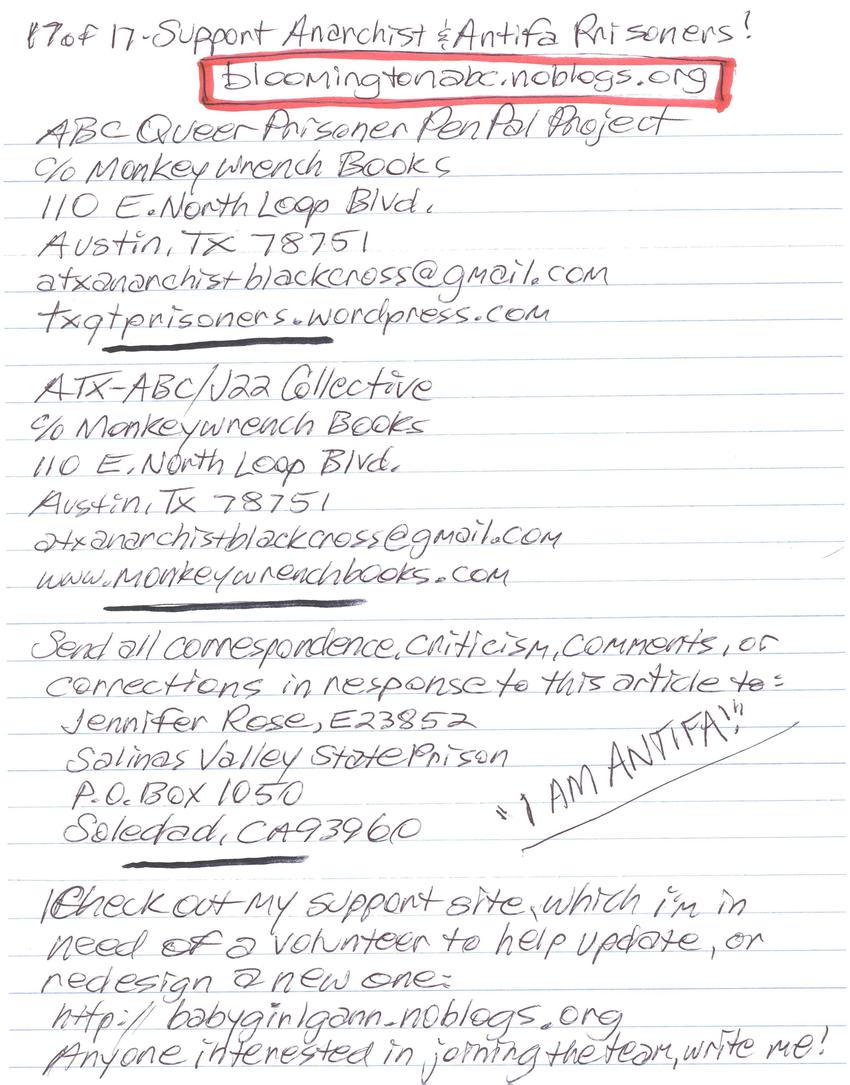 17 of 17-Support Anarchist & Antifa Prisoners!
bloomingtonabc.noblogs.org
ABC Queer Prisoner Pen Pal Project
c/o Monkeywrench Books
110 E. North Loop Blvd.
Austin, TX 78751
atxanarchistblackcross@gmail.com
txqtprisoners.wordpress.com
ATX-ABC/J22 Collective
c/o Monkeywrench Books
110 E. North Loop Blvd.
Austin, TX 78751
atxanarchistblackcross@gmail.com
www.monkeywrenchbooks.com
Send all correspondence, criticism, comments, or
corrections in response to this article to:
Jennifer Rose, E23852
Salinas Valley State Prison
P.O. Box 1050
Soledad, CA 93960
"I AM ANTIFA!"
Check out my support site, which i'm in
need of a volunteer to help update, or
redesign a new one:
http://babygirlgann.noblogs.org
Anyone interested in joining the team, write me!